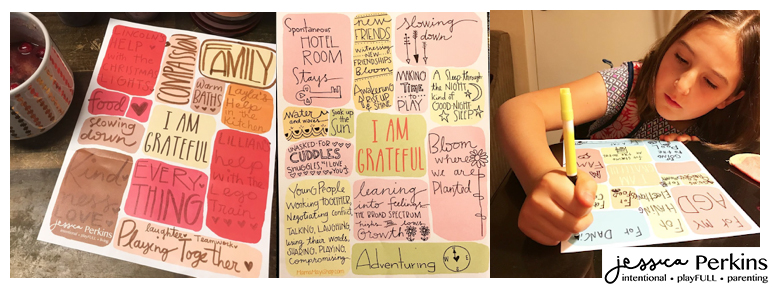 LINCOLN'S
HELP
with the
CHRISTMAS
LIGHTS
COMPASSION
FAMILY
Warm
BATHS
Layla's
Help
in the
Kitchen
food
slowing
down
I AM
GRATEFUL
LILLIAN'S
help
with the
Lego
Train
EVERY
THING
laughter
Teamwork
Playing Together
jessica Perkins
intentional • playFULL • parenting
Spontaneous
HOTEL
ROOM
Stays
new
FRIENDS
witnessing
NEW
FRIENDSHIPS
Bloom
Awakening
RISE UP
& SHINE
slowing
down
MAKING
TIME
to
PLAY
A Sleep through
the NIGHT
kind of
GOOD NIGHT
SLEEP
Water
and waves
Soak up
the
Sun
UNASKED FOR
CUDDLES
SNUGGLES, "I LOVE
you's"
I AM
GRATEFUL
Bloom
where
we are
Planted
Young People
Working TOGETHER
Negotiating conflict
TALKING, LAUGHING,
using their words,
SHARING, PLAYING,
Compromising
leaning
into feelings
THE BROAD SPECTRUM
highs & lows
Growth
Adventuring
For MY
AGD
For
HAVING
For
For DANC
jessica Perkins
intentional • playFULL • parenting